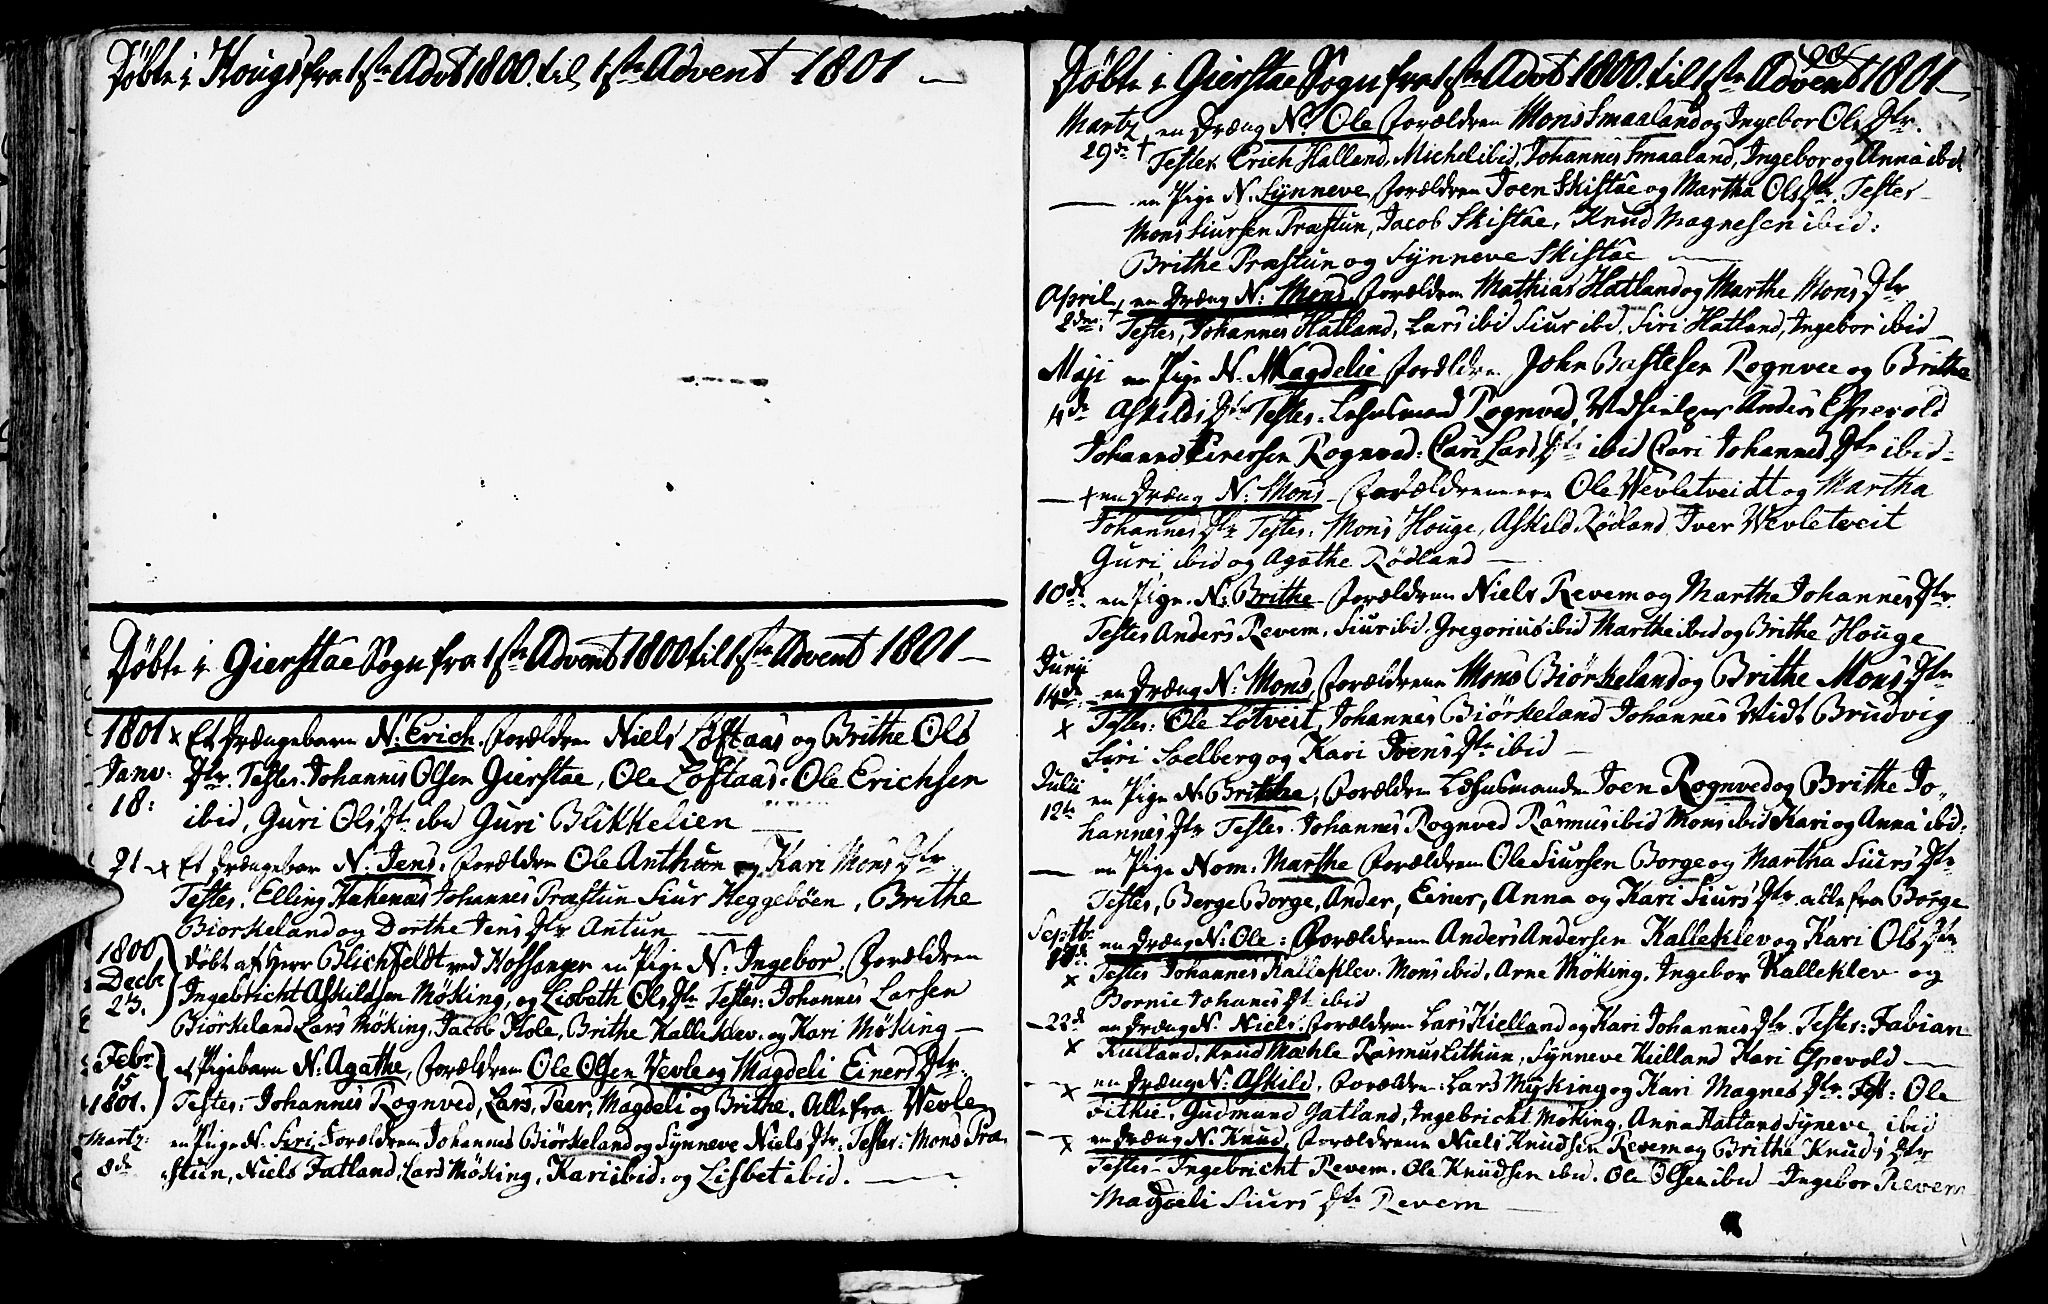 Døbte i Hougs fra 1ste Advt 1800 til 1ste Advent 1801 —
Døbte i Gierstae Sogn fra 1ste Advent 1800 til 1ste Advent 1801 —
1801 x Et Drængebarn N. Erich. Forældren Niels Løftaas og Brithe Ols
Janv: Dtr. Testes. Johannes Olsen Gierstae, Ole Løftaas: Ole Erichsen
18: ibid, Guri Ols Dtr ibd Guri Blikkelien —
21 x Et Drængebarn N. Jens. Forældren Ole Anthun og Kari Mons Dtr.
Testes. Elling Hakenæs Johannes Præstun Siur Heggebøen, Brithe
Biorkeland og Dorthe Jens Dtr Antun —
1800 Døbt af Herr Blichfeldt ved Hossanger en Pige N. Ingebor. Forældren
Decbr Ingebricht Askildsen Møking, og Lisbeth Ols Dtr Testes: Johannes Larsen
23. Biørkeland Lars Møking, Jacob Hole, Brithe Kalleklev. og Kari Møking —
Febr et Pigebarn N: Agathe, Forældren Ole Olsen Vevle og Magdeli Einers Dtr.
15 1801. Testes: Johannes Rognved, Lars, Peer, Magdeli og Brithe. Alle fra Wevle
Martz: en Pige N. Siri, Forældren Johannes Biørkeland og Synneve Niels Dtr. Testes: Mons Præ
8de stun, Niels Fatland, Lars Møking, Kari ibid. og Lisbet ibid. —
Døbte i Gierstae Sogn fra 1ste Advt 1800 til 1ste Advent 1801 —
Martz en Dræng N. Ole Forældren Mons Smaaland og Ingebor Ols Dtr.
29de + Testes. Erich Halland, Michel ibid, Johannes Smaaland, Ingebor og Anna ibid
— en Pige N. Synneve, Forældren Joen Skistae og Martha Ols Dtr. Testes
Mons Siursen Præstun, Jacob Skistae, Knud Magnesen ibid:
Brithe Præstun og Synneve Skistae —
April, en Dræng N: Mons, Forældren Mathias Hatland og Marthe Mons Dtr
2den + Testes, Johannes Hatland, Lars ibid Siur ibd. Siri Hatland, Ingebor ibid
Maji en Pige N. Magdelie Forældren John Bastesen Rognvee og Brithe
4de Askilds Dtr Testes. Lehnsmand Rognved, Andirs Espevold
Johannes Einersen Rognved: Cari Lars Dtr ibid Cari Johannes Dtr ibid:
— x en Dræng N: Mons Forældrene ere Ole Wevletveidt og Martha
Johannes Dtr Testes. Mons Houge, Askild Rødland Iver Wevletveit
Guri ibid og Agathe Rødland —
10de en Pige. N: Brithe Forældren Niels Revem og Marthe Johannes Dtr.
Testes Anders Revem. Siur ibd. Gregorius ibid Marthe ibid og Brithe Houge
Junii en Dræng N: Mons, Forældrene Mons Biørkeland og Brithe Mons Dtr
14de x Testes: Ole Lotveit, Johannes Biørkeland Johannes Widt Brudvig
Siri Soelberg og Kari Joens Dtr ibid —
Julii en Pige N. Brithe, Forældren Lehnsmanden Joen Rognved og Brithe Jo-
12te hannes Dtr Testes. Johannes Rognved Rasmus ibid Mons ibid Kari og Anna ibid:
— en Pige Nom. Marthe Forældren Ole Siursen Borge og Martha Siurs Dtr
Testes, Berge Borge, Ander, Einer, Anna og Kari Siurs Dtr. alle fra Borge
Septb: en Dræng N: Ole: Forældrene Anders Andersen Kalleklev og Kari Ols Dtr
x Testes Johannes Kalleklev. Mons ibid, Arne Møking, Ingebor Kalleklev og
Bornie Johanes Dtr ibid
— 22de en Dræng N. Niels. Forældren Lars Kielland og Kari Johannes Dtr. Testes: Fabian
x Kielland, Knud Mæhle Rasmus Lithun, Synneve Kielland Kari Espevold —
— x en Dræng N: Askild, Forældren Lars Myking og Kari Magnes Dtr. Test: Ole
Fitkie, Gudmund Hatland, Ingebricht Møking, Anna Hatland Synneve ibid
— x en Dræng N. Knud, Forældrene Niels Knudsen Revem og Brithe Knuds Dtr
Testes — Ingebricht Revem. Ole Knudsen ibid. Ole Olsen ibid Ingebor Revem
Magdeli Siurs Dtr Revem —